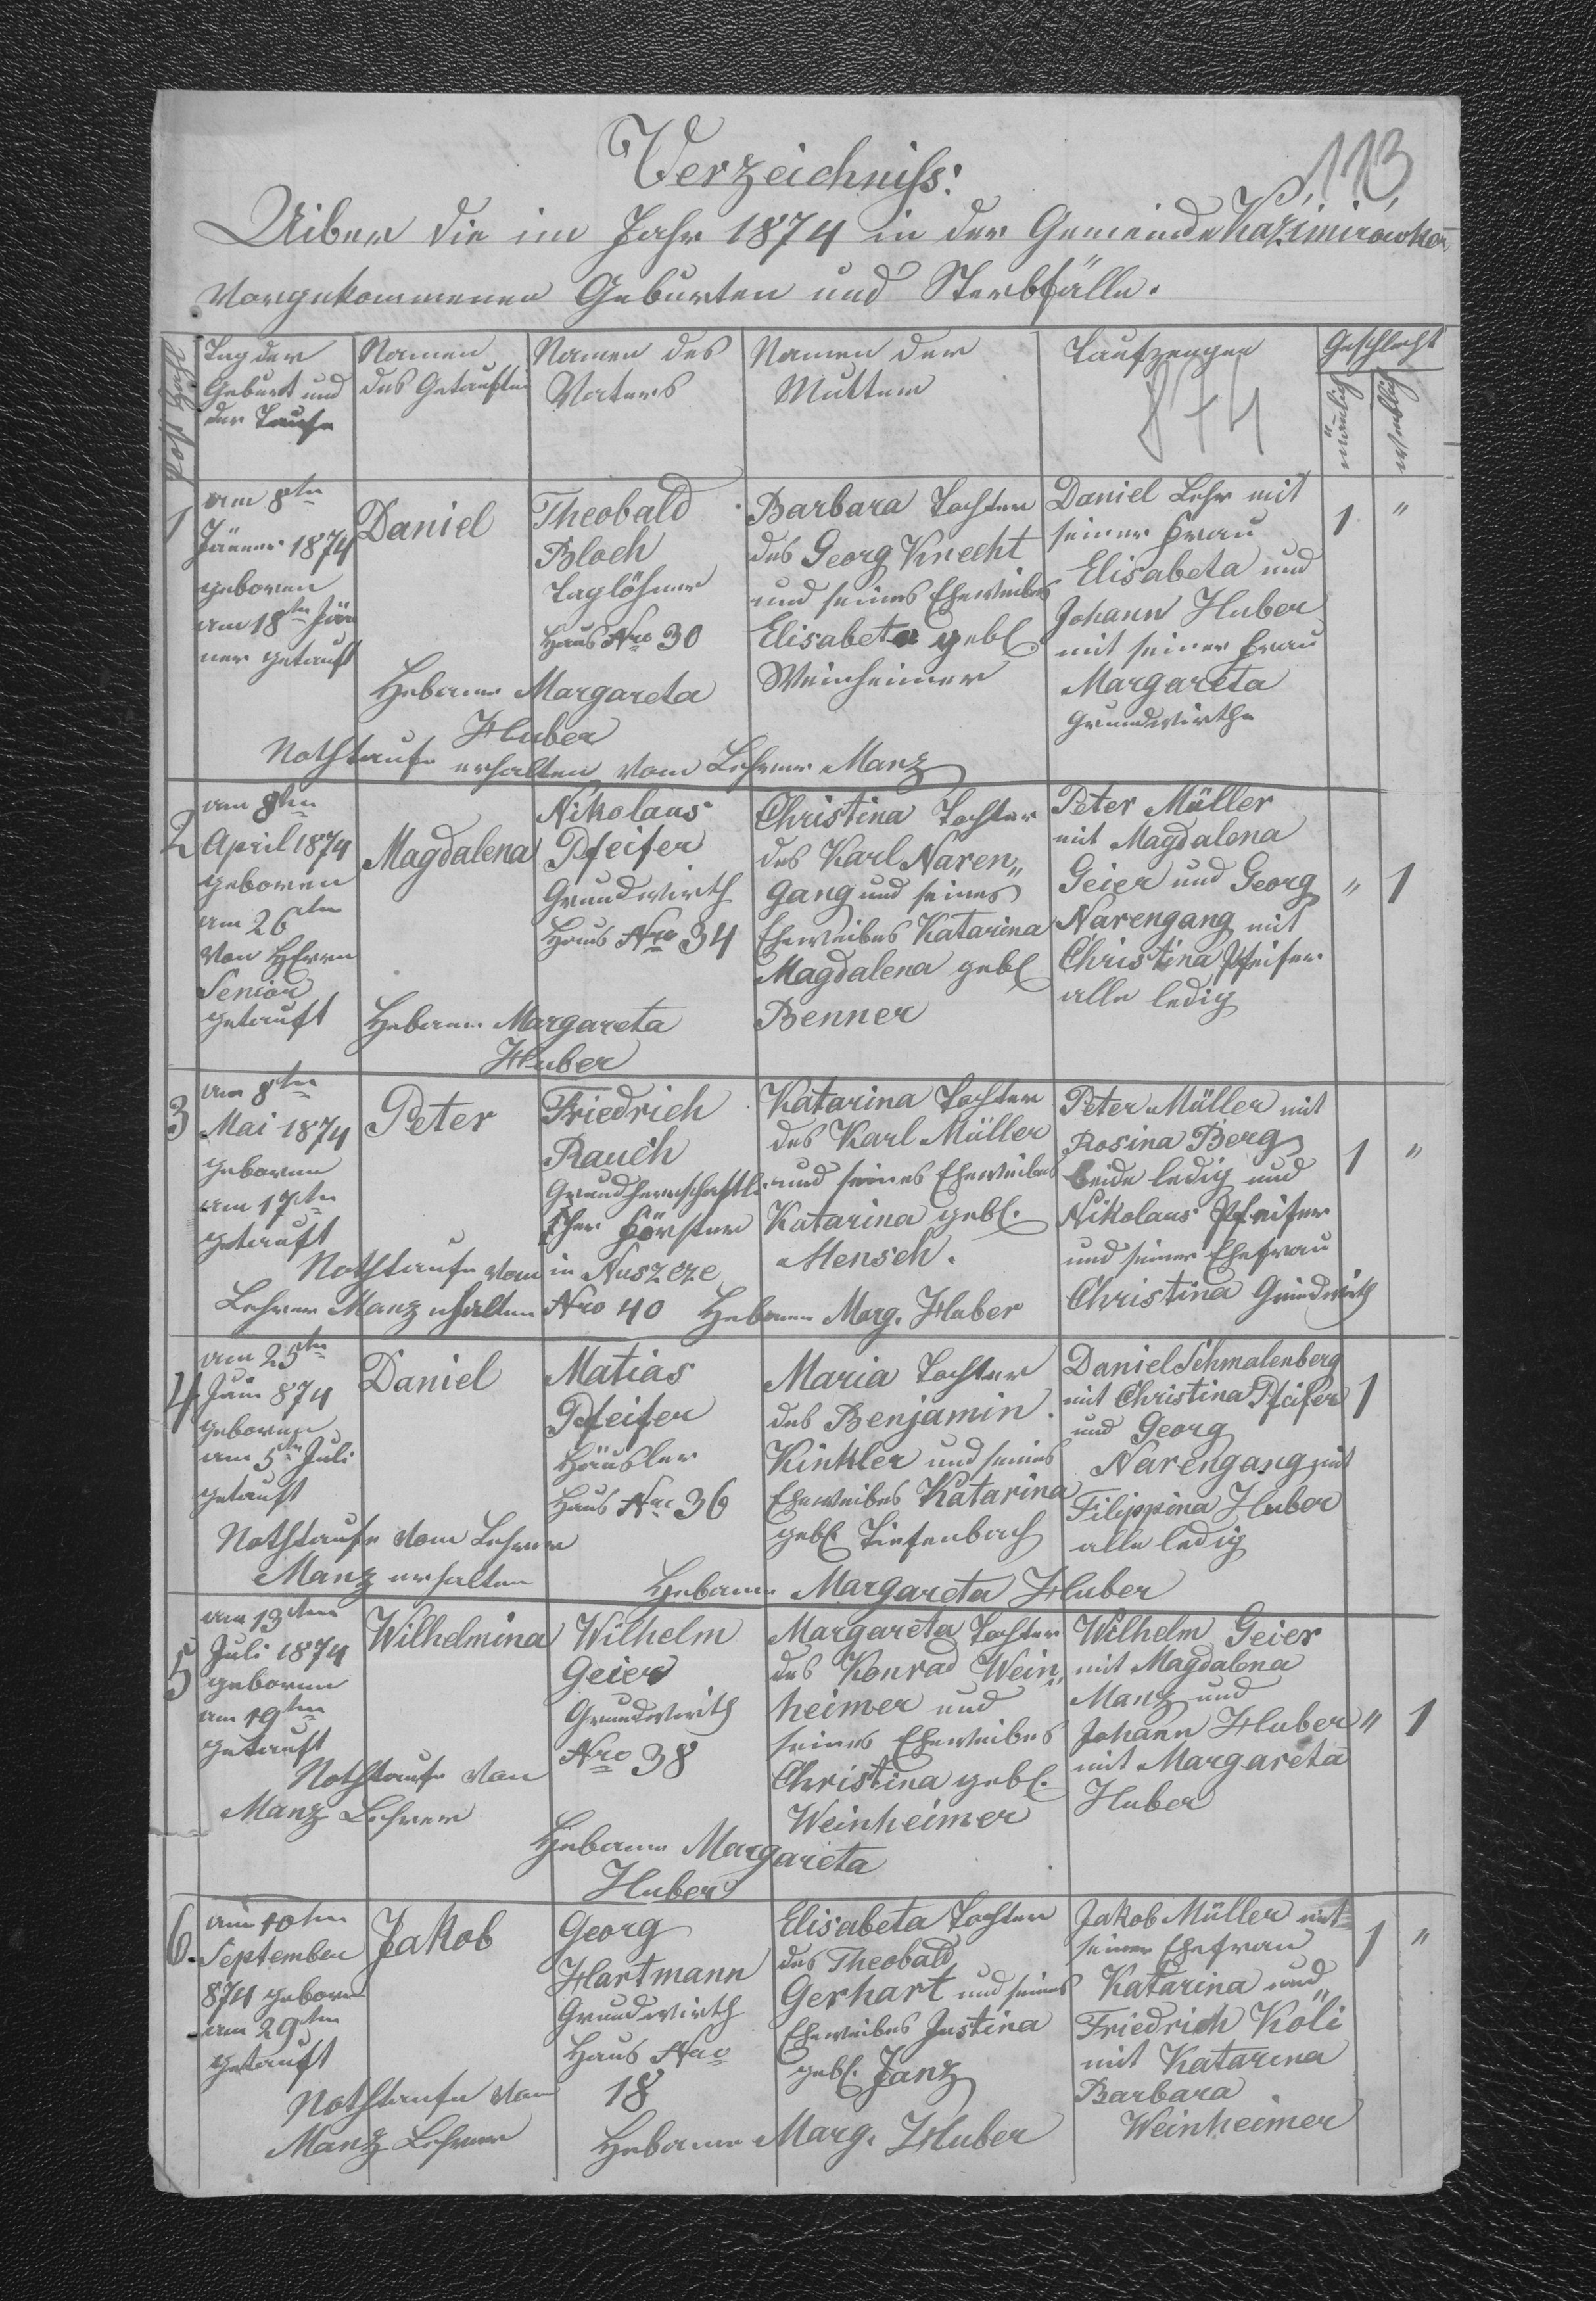 113
Verzeichniss:
Uiber die im Jahr 1874 in der Gemeinde Kazimirowka
vorgekommenen Geburten und Sterbfälle.
Post Zahl
Tag der
Geburt und
der Taufe
Namen
des Getauften
Namen des
Vaters
Namen der
Mutter
Taufzeugen
874
Geschlecht
mänlich
weiblich
1
am 8ten
Jänner 1874
geboren
am 18ten Jän
ner getauft
Daniel
Theobald
Bloch
Taglöhner
Haus Nro 30
Barbara Tochter
des Georg Knecht
und seines Eheweibes
Elisabeta gebl.
Weinheimer
Daniel Lehr mit
seiner Frau
Elisabeta und
Johann Huber
mit seiner Frau
Margareta
Grundwirthe
1
"
Hebame Margareta
Huber
Nothtaufe erhalten vom Lehrer Manz
2
am 8ten
April 1874
geboren
am 26ten
von Herrn
Senior
getauft
Magdalena
Nikolaus
Pfeifer
Grundwirth
Haus Nro 34
Christina Tochter
des Karl Naren„
gang und seines
Eheweibes Katarina
Magdalena gebl
Benner
Peter Müller
mit Magdalena
Geier und Georg
Narengang mit
Christina Pfeifer
alle ledig
"
1
Hebame Margareta
Huber
3
am 8ten
Mai 1874
geboren
am 17ten
getauft
Peter
Friedrich
Rauch
Grundherrschaftli
cher Förster
in Nuszcze
Nro 40
Katarina Tochter
des Karl Müller
und seines Eheweibes
Katarina gebl.
Mensch.
Peter Müller mit
Rosina Berg
beide ledig und
Nikolaus Pfeifer
und seiner Ehefrau
Christina Grundwirth
1
"
Nothtaufe vom
Lehrer Manz erhalten
Hebame Marg. Huber
4
am 25ten
Juni 874
geboren
am 5ten Juli
getauft
Daniel
Matias
Pfeifer
Häusler
Haus Nro 36
Maria Tochter
des Benjamin
Kinkler und seines
Eheweibes Katarina
gebl. Tiefenbach
Daniel Schmalenberg
mit Christina Pfeifer
und Georg
Narengang mit
Filippina Huber
alle ledig
1
Nothtaufe vom Lehrer
Manz erhalten
Hebame Margareta Huber
5
am 13ten
Juli 1874
geboren
am 19ten
getauft
Wilhelmina
Wilhelm
Geier
Grundwirth
Nro 38
Margareta Tochter
des Konrad Wein„
heimer und
seines Eheweibes
Christina gebl.
Weinheimer
Wilhelm Geier
mit Magdalena
Manz und
Johann Huber
mit Margareta
Huber
"
1
Nothtaufe von
Manz Lehrer
Hebame Margareta
Huber
6.
am 10ten
September
874 geboren
am 29ten
getauft
Jakob
Georg
Hartmann
Grundwirth
Haus Nro
18
Elisabeta Tochter
des Theobald
Gerhart und seines
Eheweibes Justina
gebl. Janz
Jakob Müller mit
seiner Ehefrau
Katarina und
Friedrich Koli
mit Katarina
Barbara
Weinheimer
1
"
Nothtaufe von
Manz Lehrer
Hebame Marg. Huber